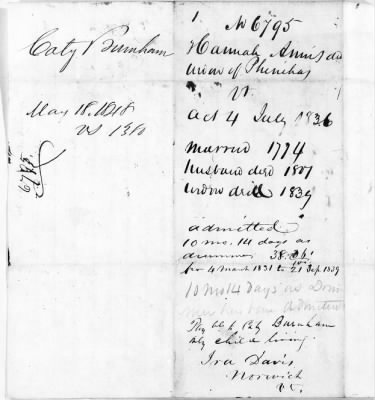 Caty Burnham
May 18. 1848
1
No 6795
Hannah Annis
widow of Phinehas
Vt.
act 4 July 1836
married 1774
husband died 1807
widow died 1839
admitted
10 mo. 14 days as
drummer 38.
from 4 March 1831 to 21 Sep 1839
10 mo 14 days as
admitted
Caty Burnham
only child living.
Ira Davis
Norwich
Vt.